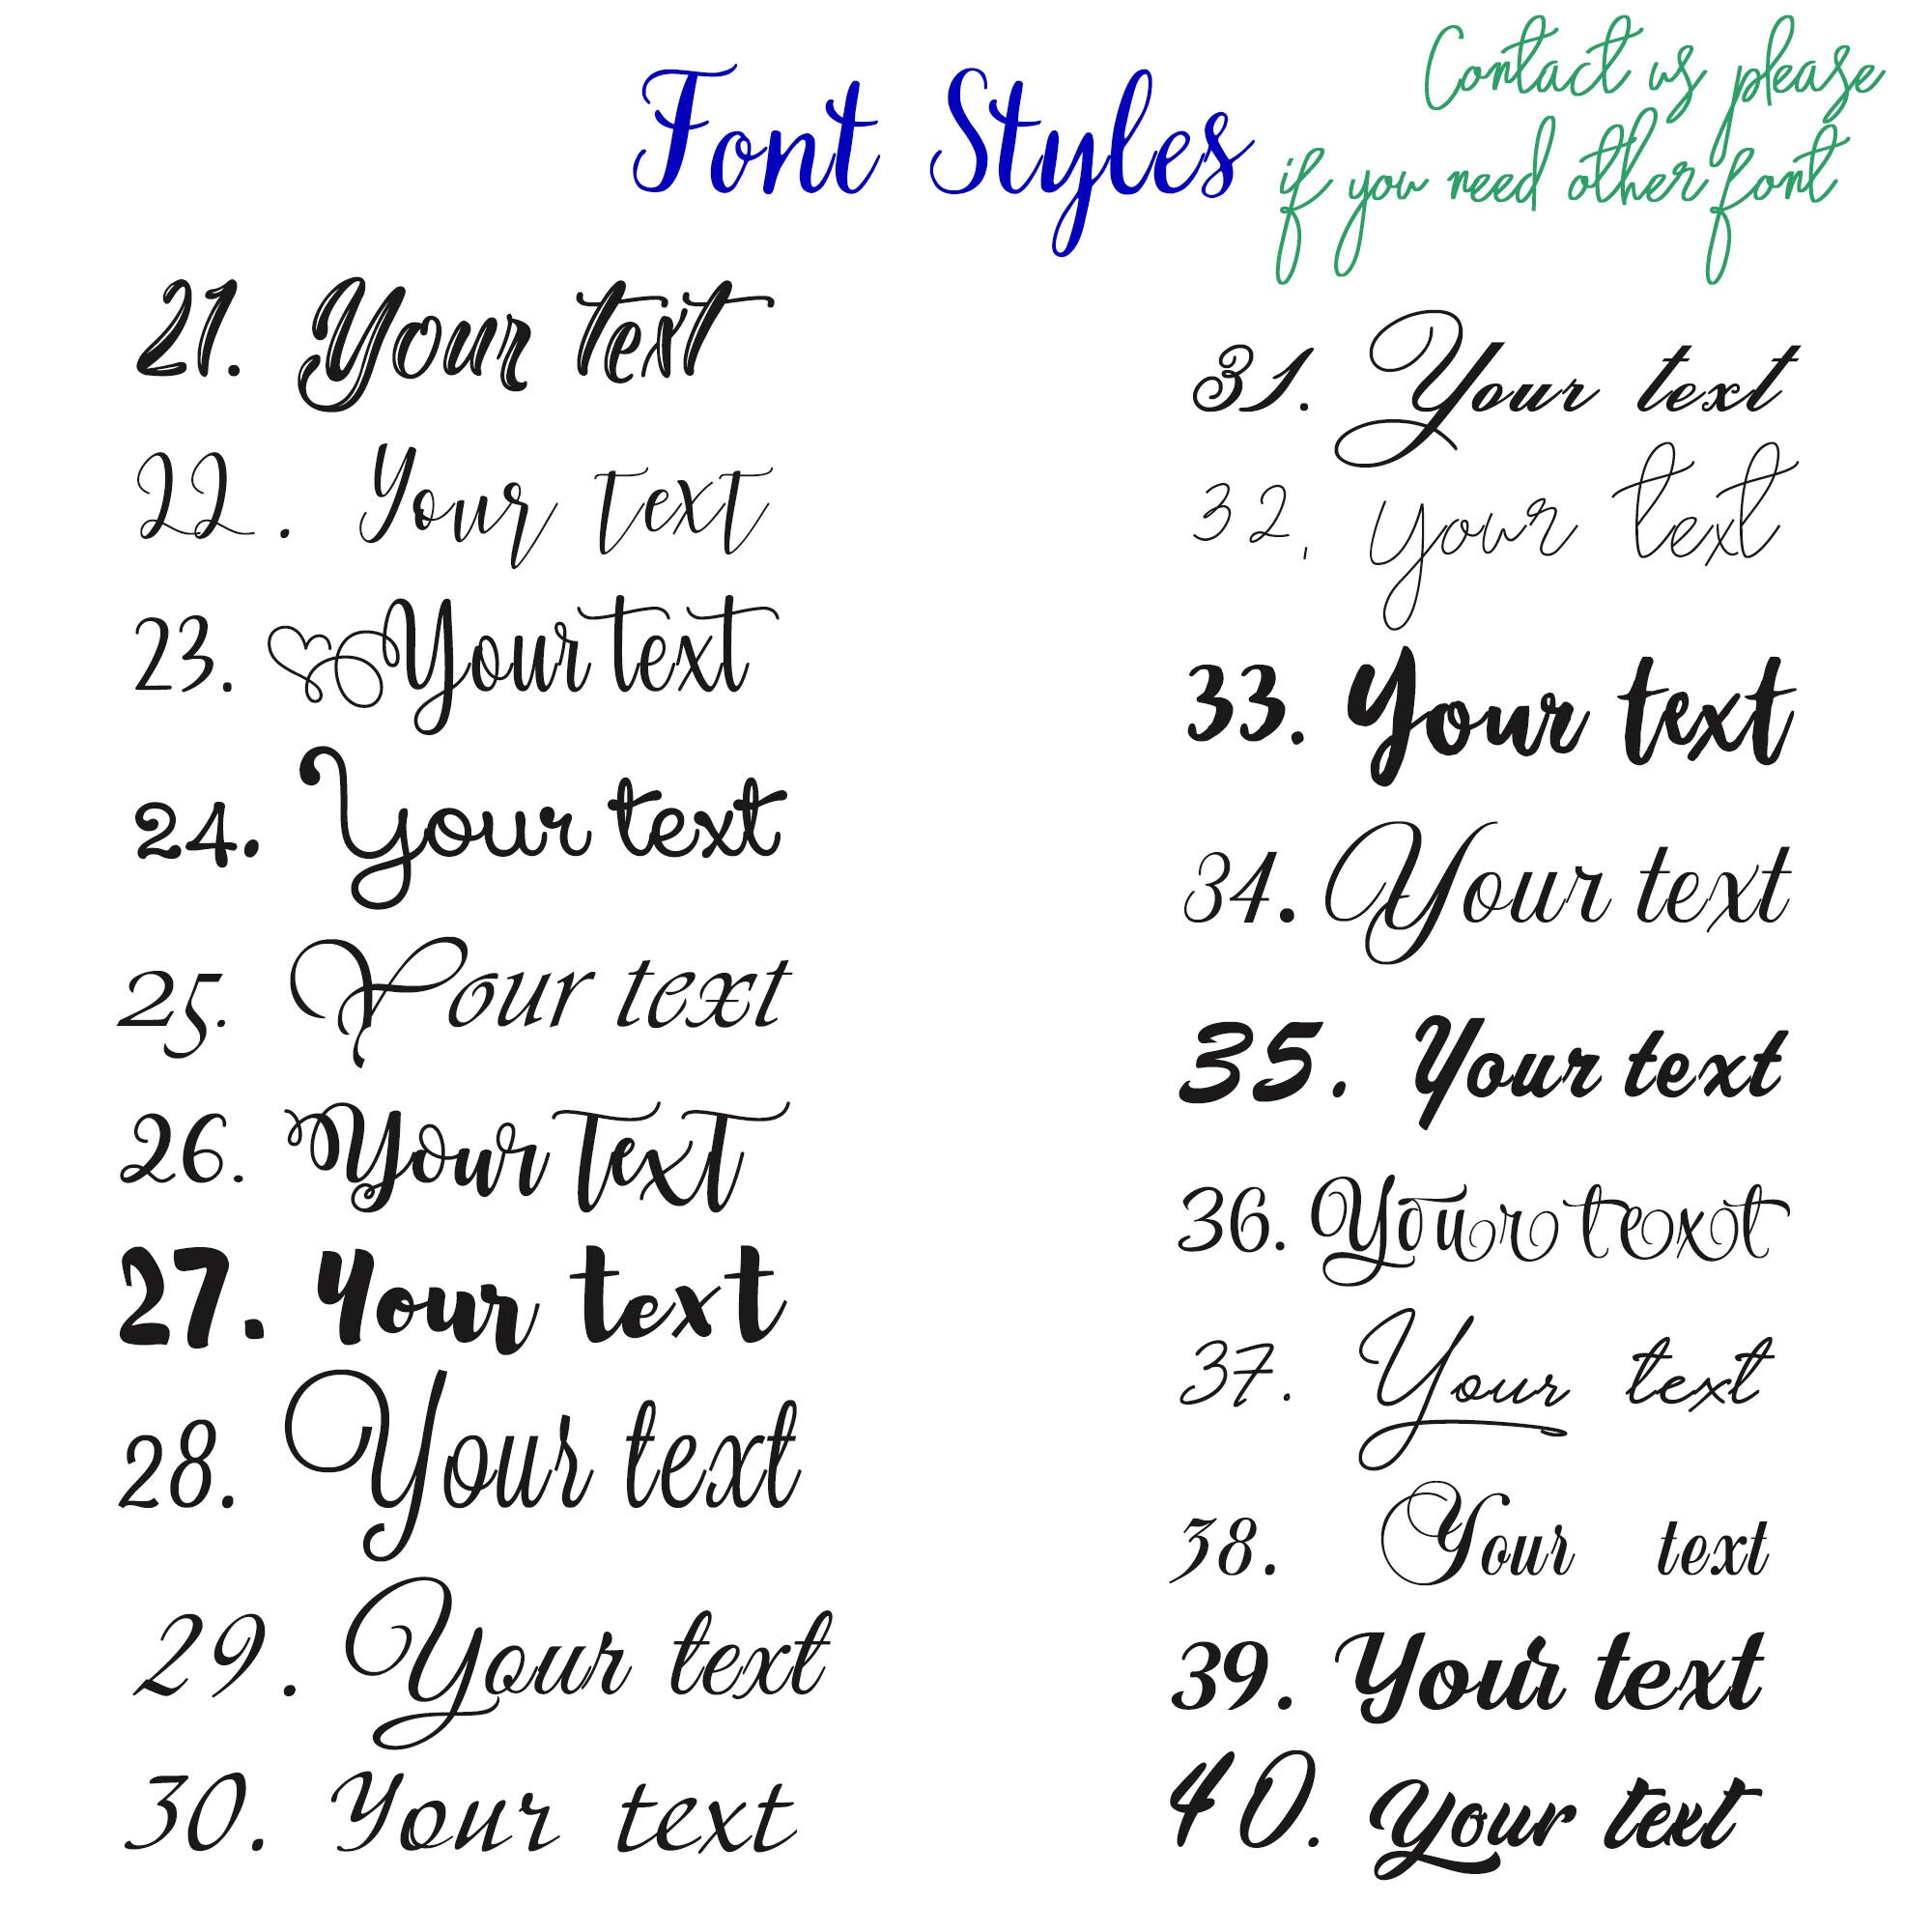 Font Styles
Contact us please
if you need other font
21. Your text
22. Your text
23. Your text
24. Your text
25. Your text
26. Your text
27. Your text
28. Your text
29. Your text
30. Your text
31. Your text
32. Your text
33. Your text
34. Your text
35. Your text
36. Your text
37. Your text
38. Your text
39. Your text
40. Your text